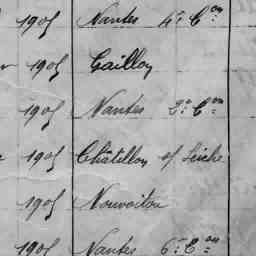 1905 Nantes 4e Con
1905 Gaillon
1905 Nantes 2e Con
1905 Châtillon s/ Seiche
1905 Nouvoitou
1905 Nantes 6e Con